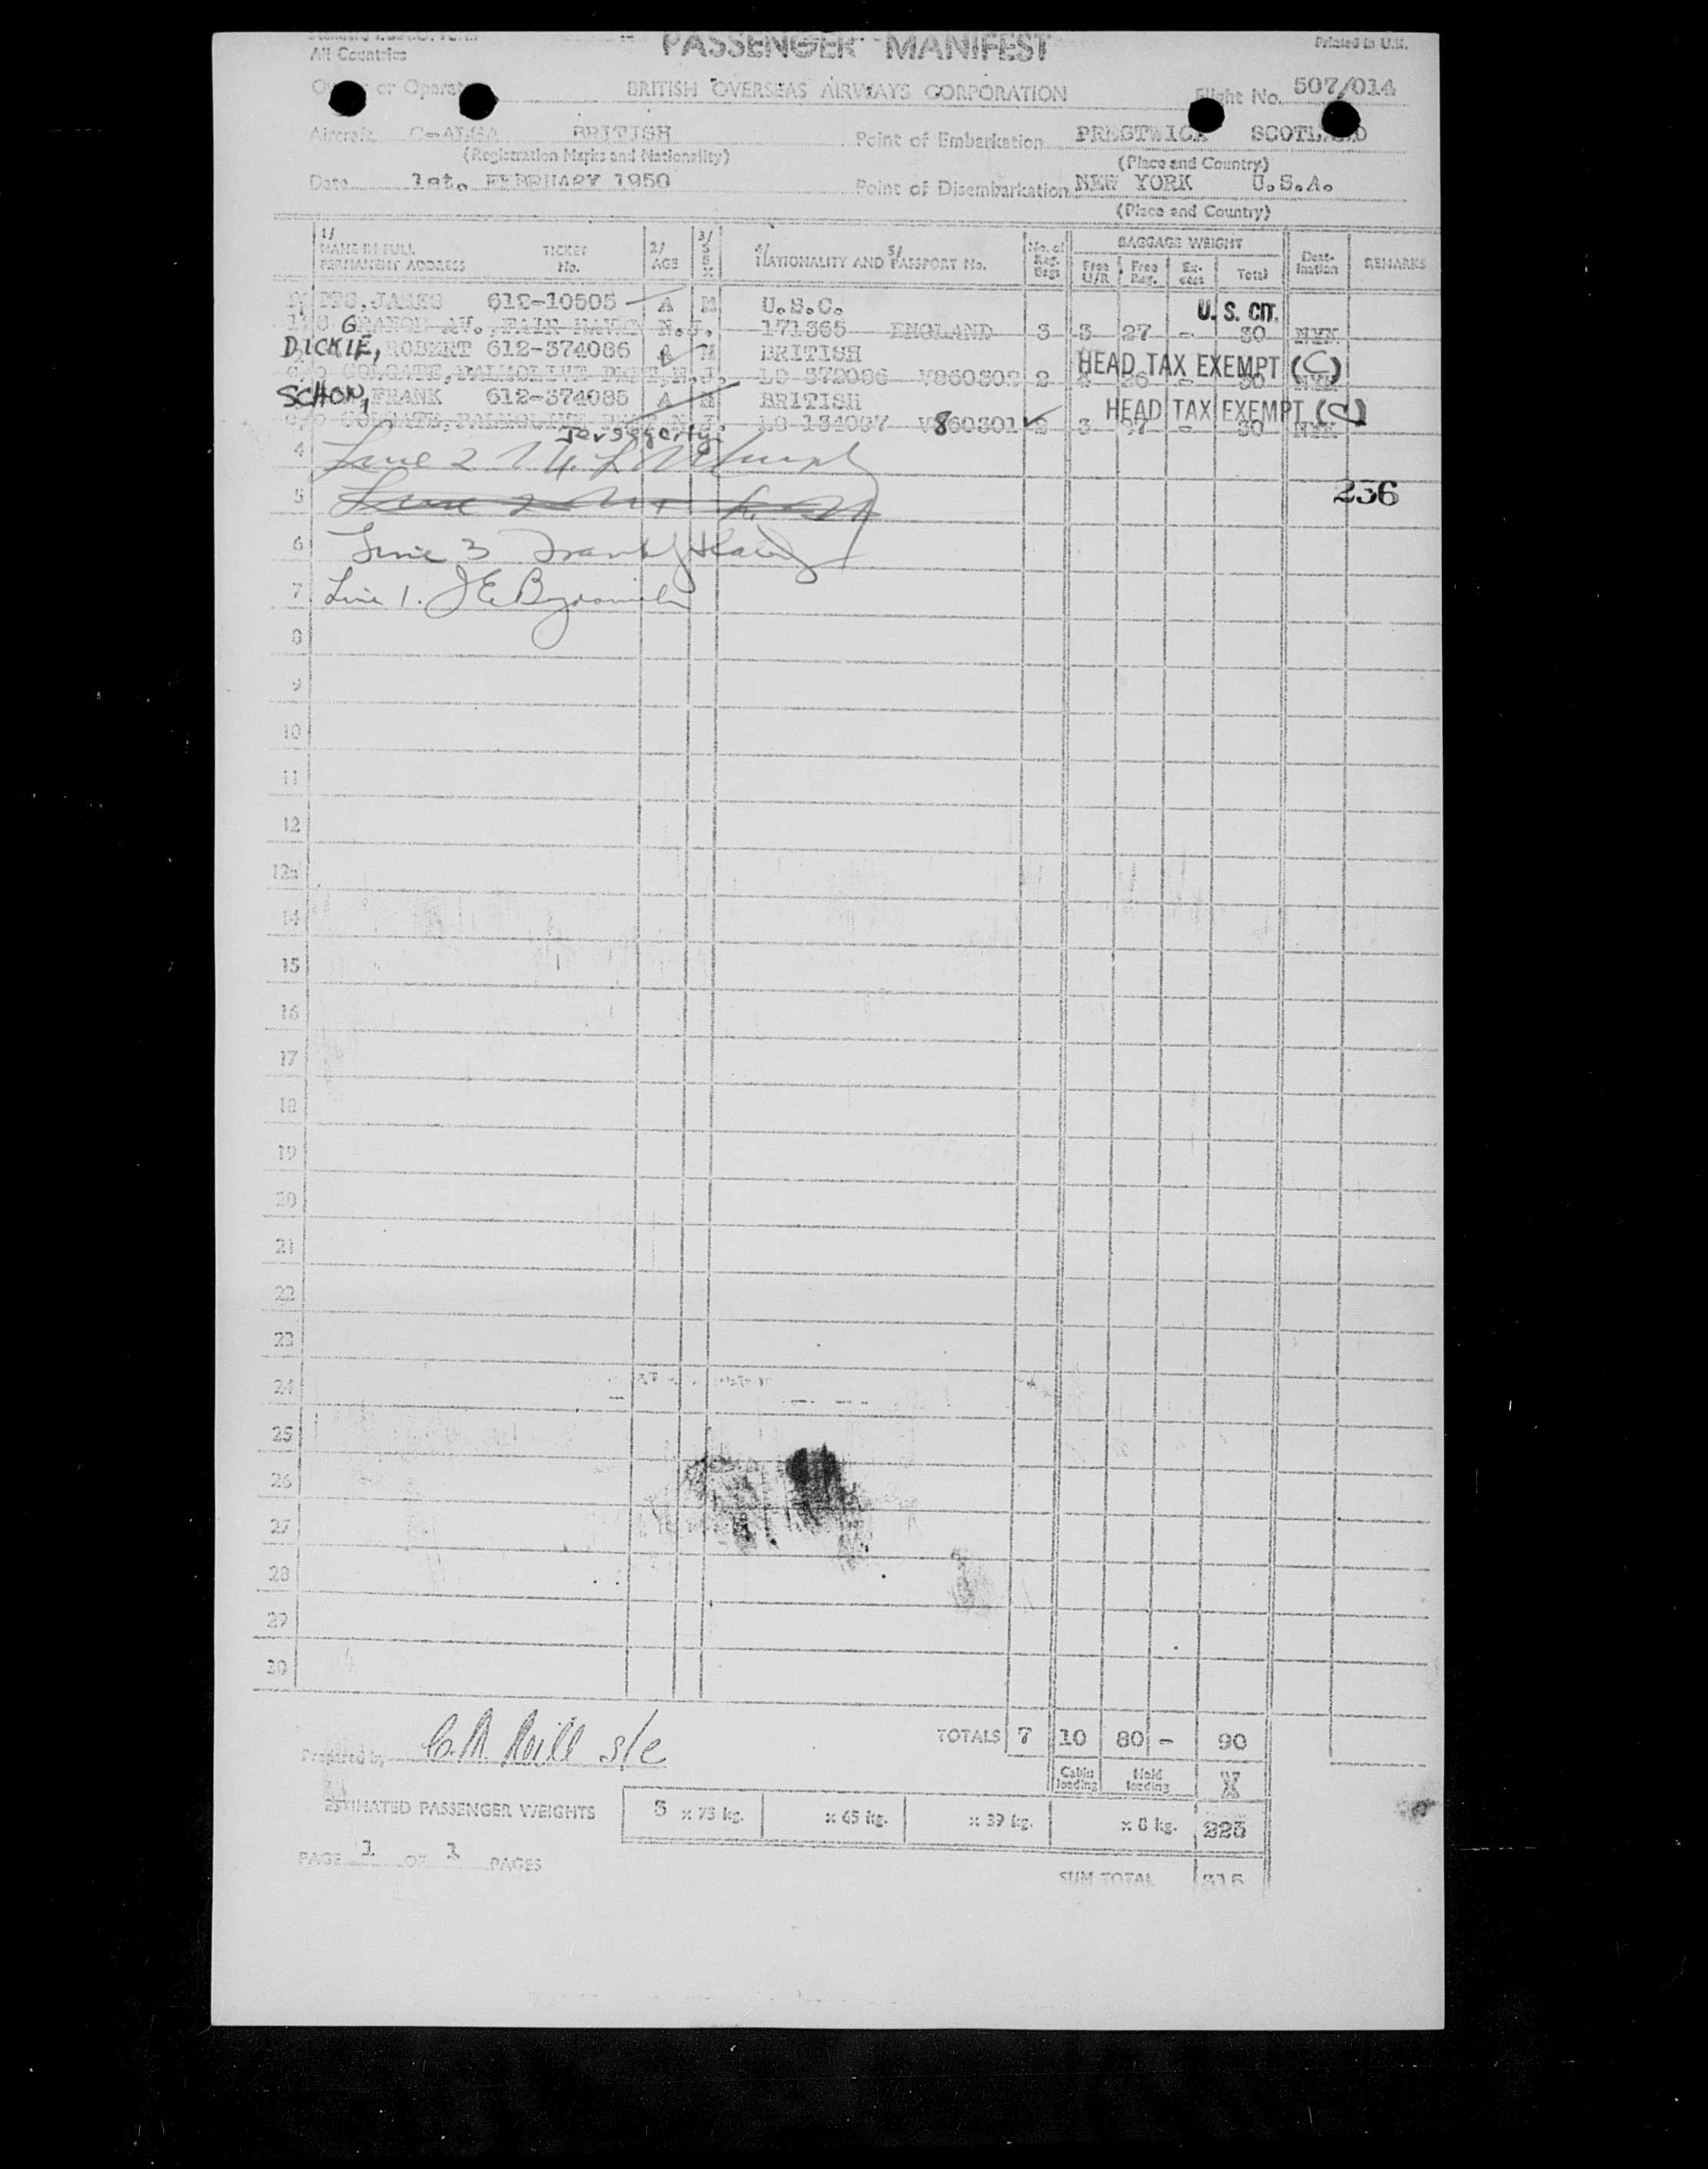 All Countries
PASSENGER MANIFEST
Printed in U.K.
BRITISH OVERSEAS AIRWAYS CORPORATION
Flight No. 507/014
Aircraft G-ALSA BRITISH
(Registration Marks and Nationality)
Point of Embarkation PRESTWICK SCOTLAND
(Place and Country)
Date 1st. FEBRUARY 1950
Point of Disembarkation NEW YORK U.S.A.
(Place and Country)
1/ NAME IN FULL PERMANENT ADDRESS TICKET No. 2/ AGE 3/ SEX 4/ NATIONALITY AND 5/ PASSPORT No. No. of Reg. Bags BAGGAGE WEIGHT Free U/R Free Reg. Excess Total Destination REMARKS
JAMES 612-10505 A M U.S.C. U. S. CIT.
AV., FAIR HAVEN N.J. 171365 ENGLAND 3 3 27 - 30 NYK
DICKIE, ROBERT 612-374086 A M BRITISH HEAD TAX EXEMPT (C)
c/o COLGATE, PALMOLIVE N.J. LO 372086 2 4 26 - 30 NYK
SCHON, FRANK 612-374085 A M BRITISH HEAD TAX EXEMPT (C)
c/o COLGATE, PALMOLIVE N.J. V860301 2 3 27 - 30 NYK
Jersey City
4 Line 2
5
236
6 Line 3
7 Line 1.
8
9
10
11
12
12a
14
15
16
17
18
19
20
21
22
23
24
25
26
27
28
29
30
Prepared by
TOTALS 7 10 80 - 90
Cabin loading Hold loading
ESTIMATED PASSENGER WEIGHTS 3 x 75 kg. x 65 kg. x 39 kg. x 8 kg. 225
PAGE 1 OF 1 PAGES
SUM TOTAL 315